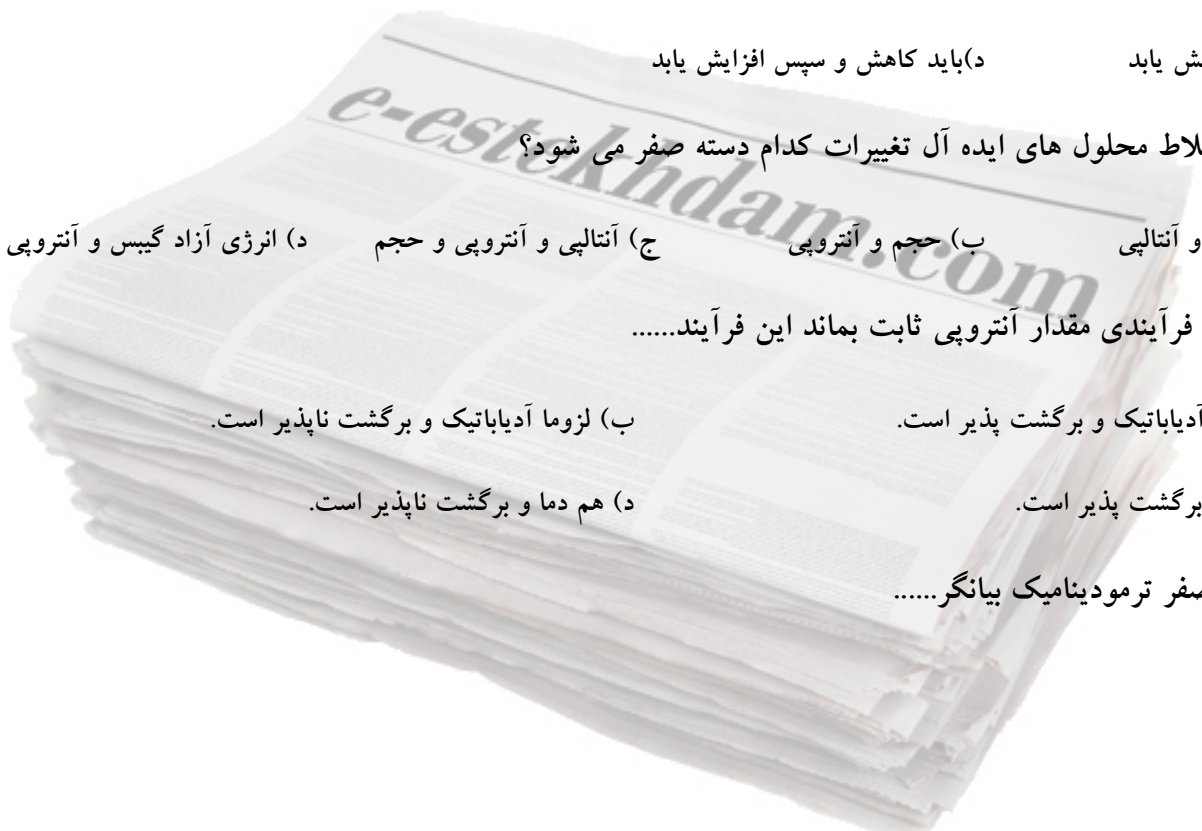 ش یابد د)باید کاهش و سپس افزایش یابد
e-estekhdam.com
لاط محلول های ایده آل تغییرات کدام دسته صفر می شود؟
و آنتالپی ب) حجم و آنتروپی ج) آنتالپی و آنتروپی و حجم د) انرژی آزاد گیبس و آنتروپی
فرآیندی مقدار آنتروپی ثابت بماند این فرآیند......
آدیاباتیک و برگشت پذیر است. ب) لزوما آدیاباتیک و برگشت ناپذیر است.
برگشت پذیر است. د) هم دما و برگشت ناپذیر است.
صفر ترمودینامیک بیانگر......